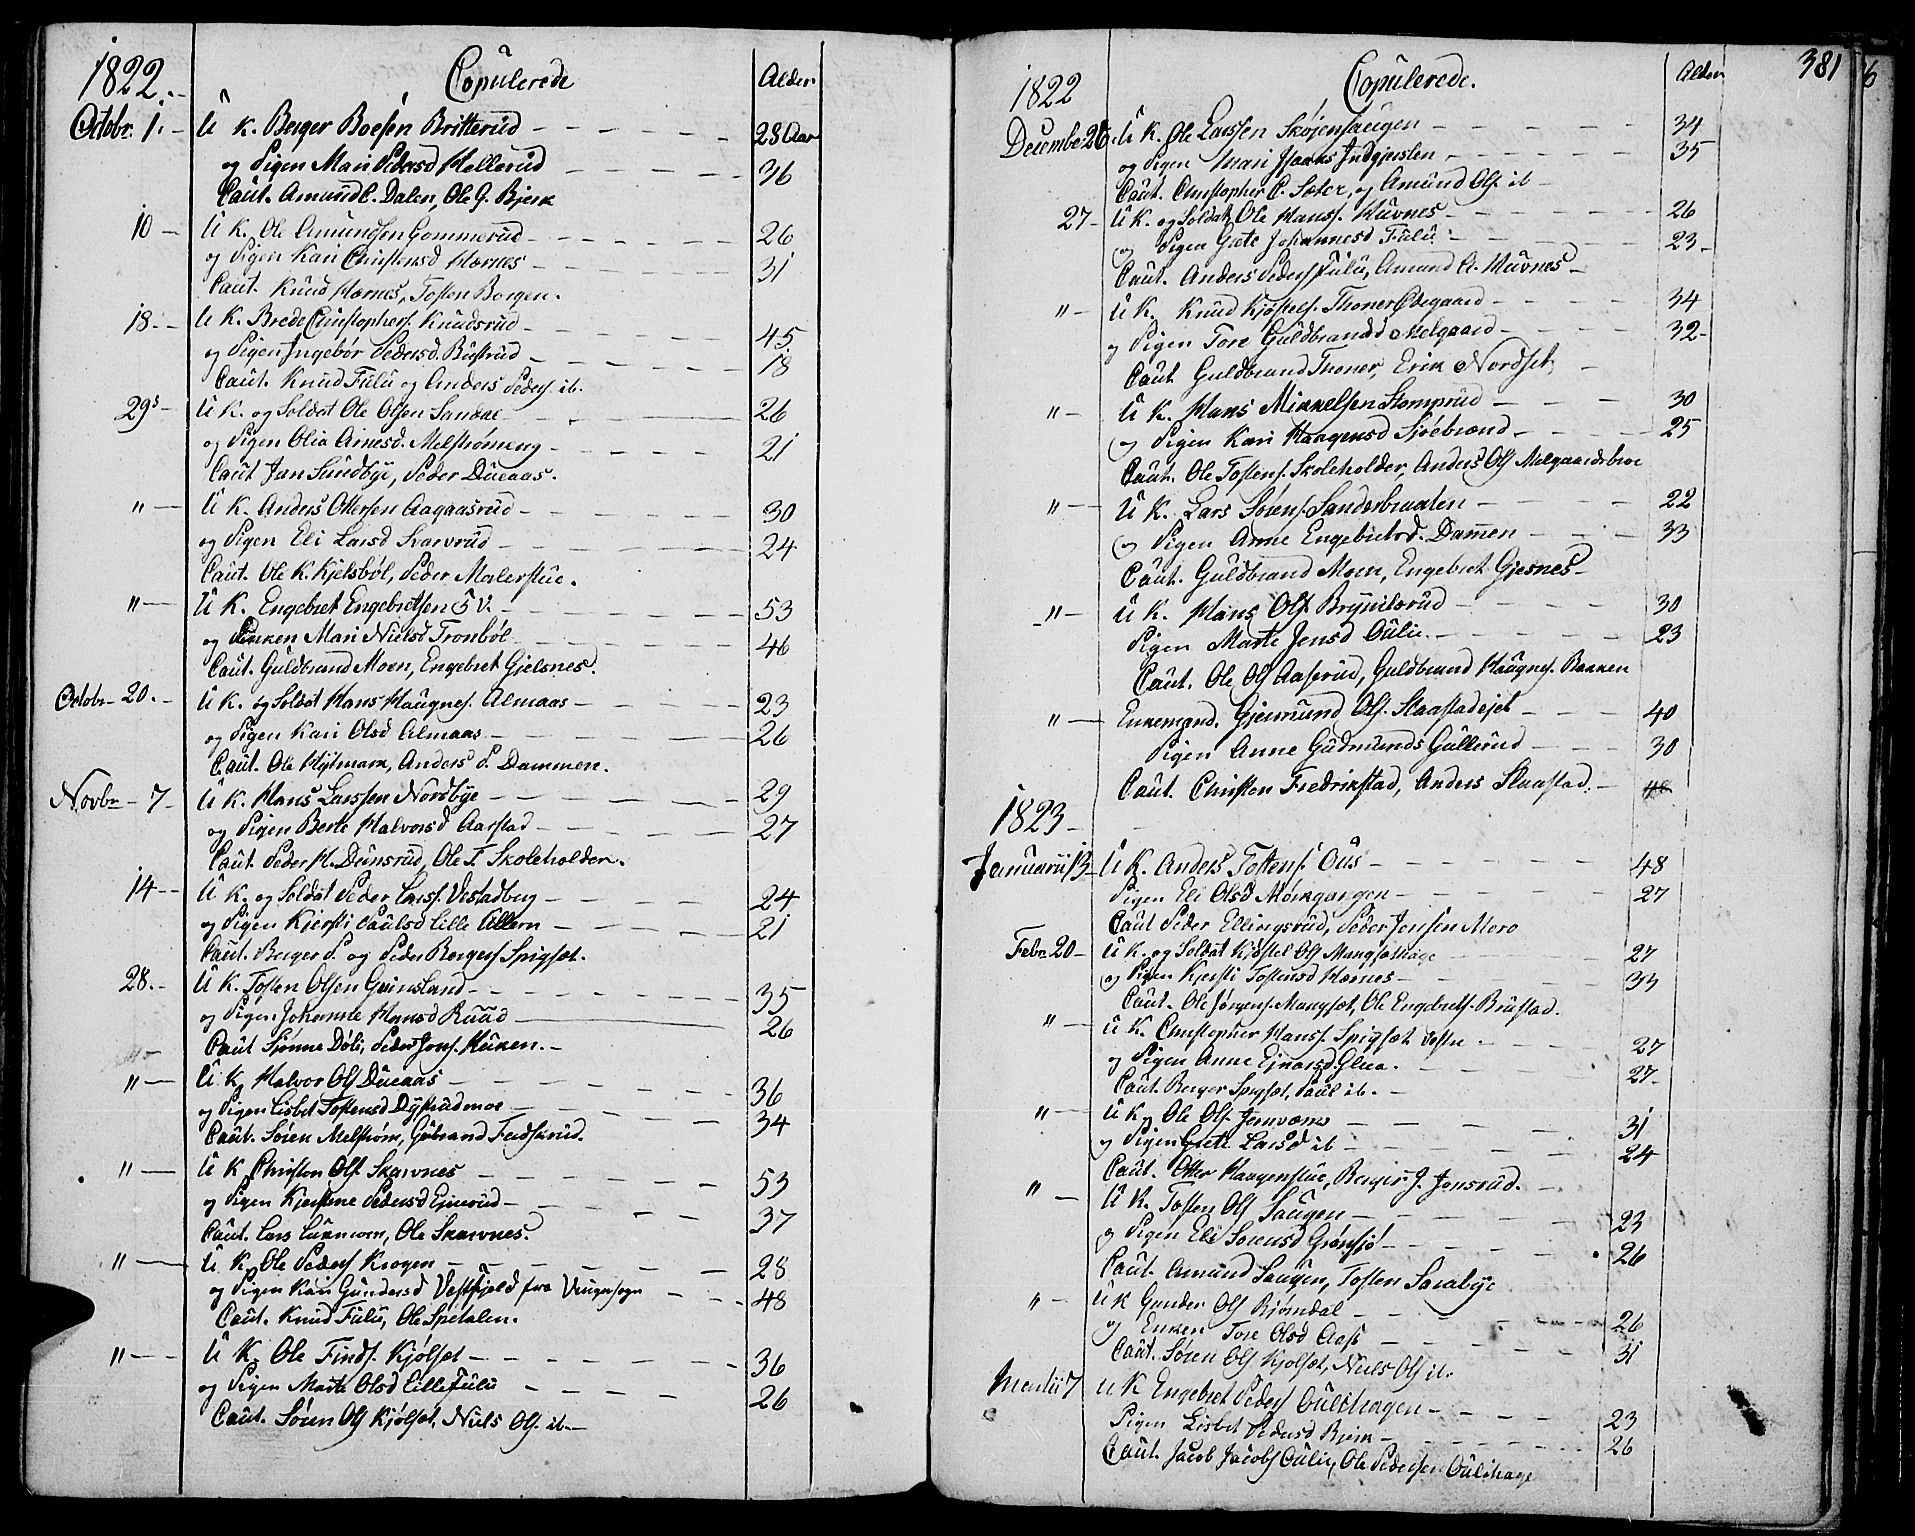 1822.
Copulerede
Alder
Octobr. 1. U K. Berger Boesen Britterud 28 Aar
og Pigen Mari Pedersd Hellerud 36
Caut. Amund C. Dalen, Ole G. Bjerk
10 U K. Ole Amundsen Gommerud 26
og Pigen Kari Christensd Hernes 31
Caut. Knud Hernes, Tosten Borgen.
18. U K. Brede Christophers. Knudsrud 45
og Pigen Ingebor Pedersd. Bustrud 18
Caut. Knud Fulu og Anders Peders. it.
29 U K. og Soldat Ole Olsen Sandae 26
og Pigen Olia Arnesd. Melstrømeng 21
Caut Jan Sundbye, Peder Dueaas.
" U K. Anders Ottersen Aagaasrud 30
og Pigen Eli Larsd Svarvrud 24
Caut. Ole K. Kjelsbøl, Peder Malerstue.
" U K. Engebret Engebretsen 53
og Mari Nielsd Tronbøl 46
Caut. Guldbrand Moen, Engebret Gjelsnes.
Octobr 20. U K. og Soldat Hans Haugnes. Almaas 23
og Pigen Kari Olsd Almaas 26
Caut. Ole Hytmark, Anders P. Dammen.
Novbr 7 U K. Hans Larssen Nordbye 29
og Pigen Berte Halvorsd Aarstad 27
Caut. Peder H. Deinsrud, Ole T. Skoleholder.
14 U K. og Soldat Peder Larss. Vestadberg 24
og Pigen Kjersti Paulsd Lille Ullern 21
Caut. Berger P. og Peder Bergers Spigset.
28. U K. Tosten Olsen Grinsland 35
og Pigen Johanne Hansd Ruud 26
Caut Sjønne Døli, Peder Jons. Huken.
" U K. Halvor Ols Dueaas 36
og Pigen Lisbet Tostensd Dystrudmoe 34
Caut. Søren Melstrøm, Gubrand Feidskrud.
" U K. Christen Ols Skarvnes 53
og Pigen Kjerstine Pedersd Ejnerud 37
Caut. Lars Lukmoen, Ole Skarvnes.
" U K. Ole Peders Krogen 28
og Pigen Kari Gundersd Vestfjeld fra Vingersogn 48
Caut. Knud Fulu, Ole Spetalen.
" U K. Ole Finds. Kjølset 36
og Pigen Marte Olsd Lillefulu 26
Caut. Søren Ols Kjølset, Niels Ols. it.
381
1822
Copulerede.
Alder
Decembe 26. U K. Ole Larssen Skøjensaugen 34
og Pigen Mari Indgjerslen 35
Caut. Christopher C. Seter, og Amund Ols. it
27 U K. og Soldat Ole Hanss. Huvnes 26
og Pigen Grete Johannesd Fulu 23
Caut. Anders Peders Fulu, Amund A. Huvnes
" U K. Knud Kjøstels. Thoner Ødegaard 34
og Pigen Tore Guldbrandsd Melgaard 32
Caut Guldbrand Thoner, Erik Nordset
" U K. Hans Mikkelsen Stomprud 30
og Pigen Kari Haagensd Sjøebrænd 25
Caut. Ole Tostens. Skoleholder, Anders Ols Melgaardsbroe
" U K. Lars Sørens. Sanderbraaten 22
og Pigen Anne Engebretsd. Dammen 33
Caut. Guldbrand Moen, Engebret Gjesnes
" U K. Hans Ols Brynilsrud 30
Pigen Marte Jensd Oulie. 23
Caut. Ole Ols Aaserud, Guldbrand Haugnes. Bakken
" Enkemand. Gjermund Ols. Skaastadejet 40
Pigen Anne Gudmunds Gullerud 30
Caut. Christen Fredrikstad, Anders Skaastad.
1823
Januarii 13 U K. Anders Tostens. Ous 48
Pigen Eli Olsd Mørkgangen 27
Caut Peder Ellingsrud, Peder Jensen Mero
Febr 20 U K. og Soldat Kjøstel Ols Mangsethage 27
og Pigen Kjersti Tostensd Hernes 33
Caut. Ole Jørgens. Mangset, Ole Engebrets. Brustad.
" U K. Christopher Hanss. Spigset Vestre 27
og Pigen Anne Ejnarsd. Glea. 27
Caut. Berger Spigset, Paul it.
" U K. Ole Ols. Jernværne 31
og Pigen Grete Larsd it 24
Caut. Otter Haagenstue, Berger J. Jensrud.
" U K. Tosten Ols Saugen 23
og Pigen Eli Sørensd Grønsjø 26
Caut. Amund Saugen, Tosten Særæbye
" U K Gunder Ols Bjørndal 26
og Enken Tore Olsd Aass 31
Caut. Søren Ols Kjølset, Niels Ols it.
Martii 7 U K Engebret Peders Oulihagen 23
Pigen Lisbet Pedersd Bjerk 26
Caut. Jacob Jacobs Oulie, Ole Pedersen Oulihage